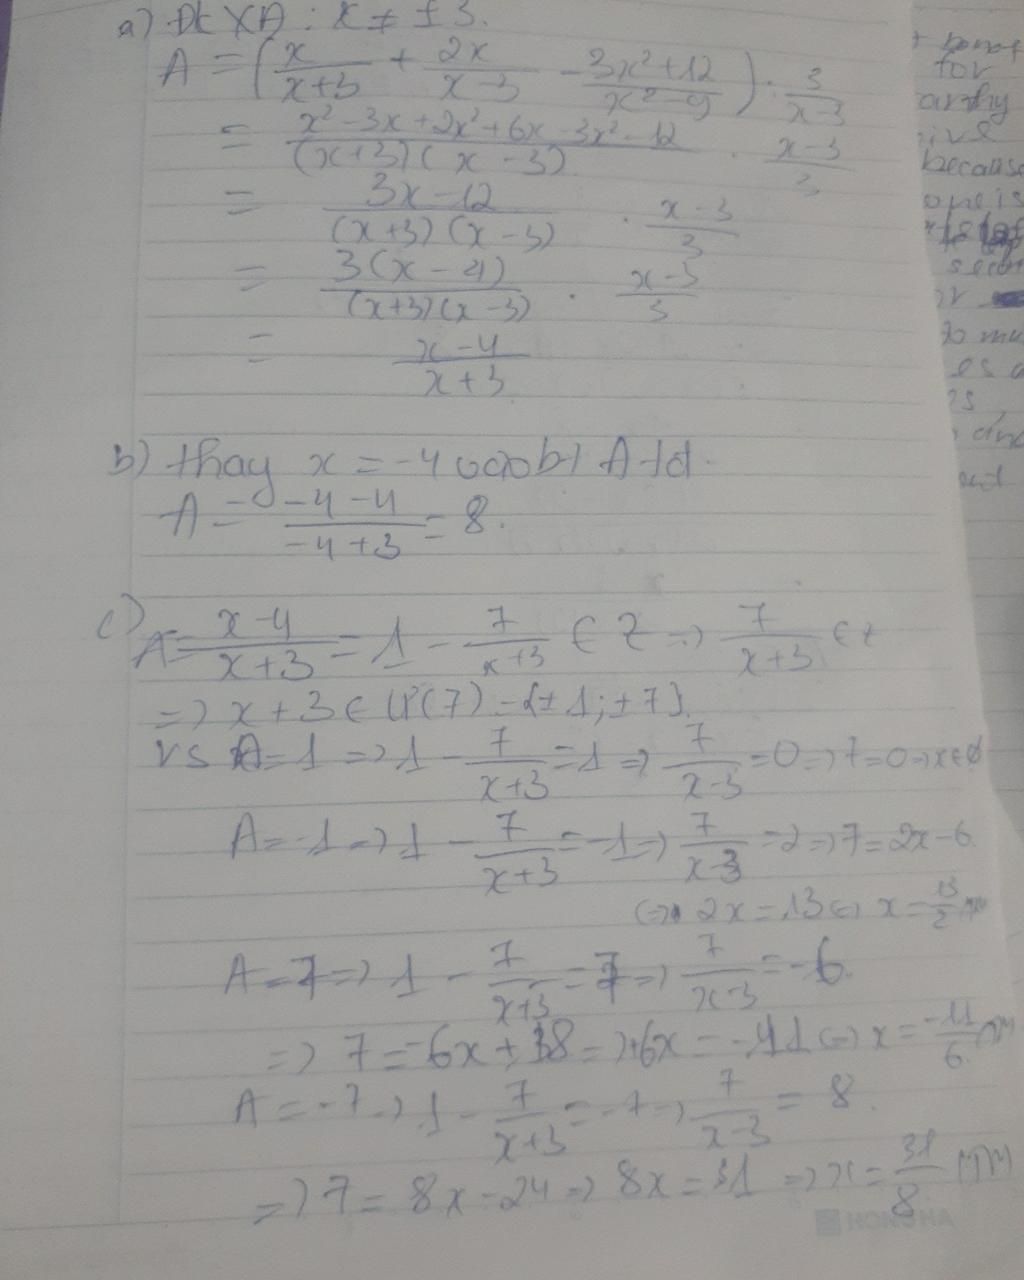 a) ĐK XĐ : x ≠ ± 3.
A = ( x/(x+3) + 2x/(x-3) - (3x²+12)/(x²-9) ) : 3/(x-3)
= (x²-3x+2x²+6x-3x²-12)/((x+3)(x-3)) . (x-3)/3
= (3x-12)/((x+3)(x-3)) . (x-3)/3
= 3(x-4)/((x+3)(x-3)) . (x-3)/3
= (x-4)/(x+3)
b) thay x = -4 vào bt A
A = (-4-4)/(-4+3) = 8.
c) A = (x-4)/(x+3) = 1 - 7/(x+3) ∈ Z => 7/(x+3) ∈ Z
=> x+3 ∈ Ư(7) = {±1; ±7}
Vs A=1 => 1 - 7/(x+3) = 1 => 7/(x-3) = 0 => 7=0 => x∈∅
A=-1 => 1 - 7/(x+3) = -1 => 7/(x-3) = 2 => 7=2x-6
<=> 2x=13 <=> x = 13/2
A=7 => 1 - 7/(x+3) = 7 => 7/(x-3) = -6.
=> 7 = -6x+18 => +6x = -11 <=> x = -11/6
A=-7 => 1 - 7/(x+3) = -7 => 7/(x-3) = 8.
=> 7 = 8x-24 => 8x=31 => x = 31/8 (TM)
for
because
HONG HA